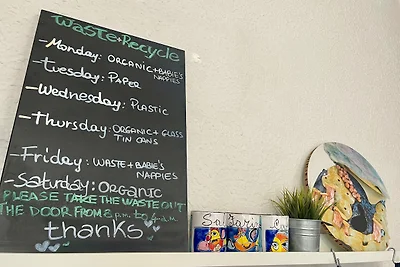 Waste+Recycle
-Monday: ORGANIC+BABIE'S
NAPPIES
-Tuesday: PAPER
-Wednesday: PLASTIC
-Thursday: ORGANIC+GLASS
TIN CANS
-Friday: WASTE+BABIE'S
NAPPIES
-Saturday: ORGANIC
PLEASE TAKE THE WASTE OUT
THE DOOR FROM 8 P.M. to
thanks